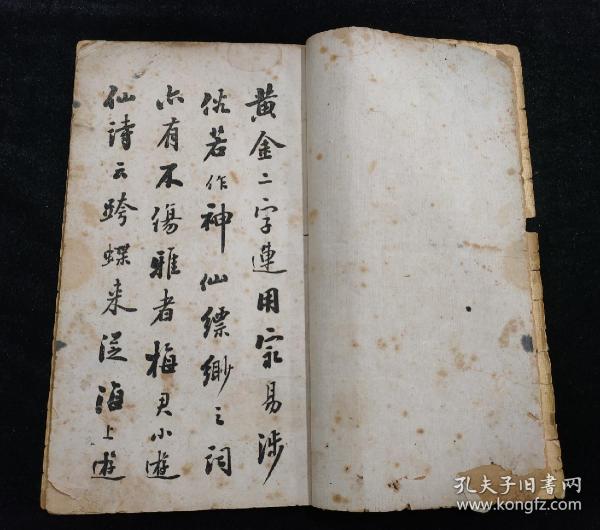 黄金二字連用冣易涉
俗若作神仙縹緲之詞
亦有不傷雅者梅君小遊
仙詩云跨蝶来從海上遊
孔夫子旧书网
www.kongfz.com